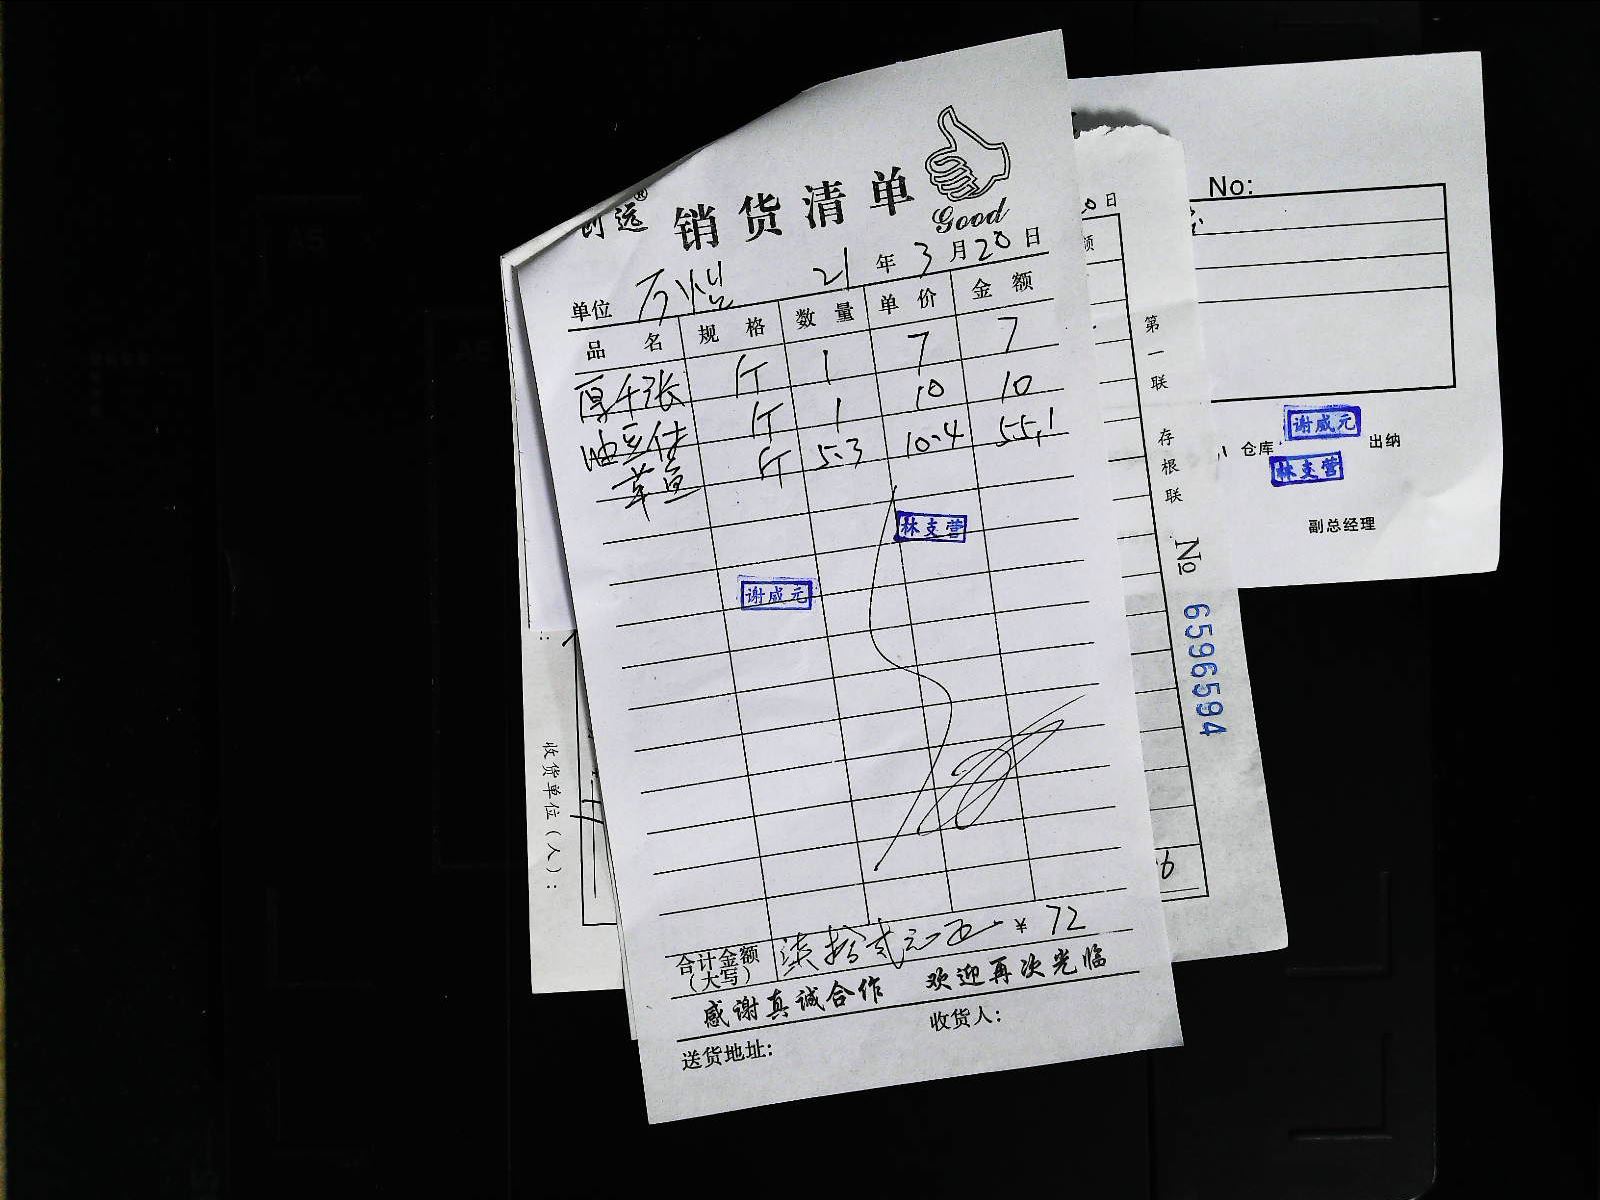 创远® 销货清单
Good
单位 万悦 21年3月20日
品名 规格 数量 单价 金额
厚千张 斤 1 7 7
油豆付 斤 1 10 10
草鱼 斤 5.3 10.4 55.1
林支营
谢威元
合计金额（大写） 柒拾贰元 ¥ 72
感谢真诚合作 欢迎再次光临
收货人：
送货地址：
收货单位（人）：
日
额
第一联 存根联
No 6596594
No:
仓库 谢威元 出纳
林支营
副总经理